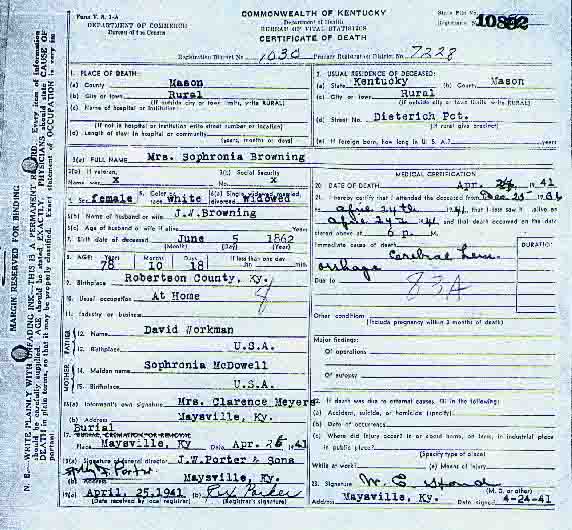 Form V. S. 1-A
COMMONWEALTH OF KENTUCKY
State File No.
DEPARTMENT OF COMMERCE
Department of Health
Registrar's No. 10852
Bureau of the Census
BUREAU OF VITAL STATISTICS
CERTIFICATE OF DEATH
Registration District No. 1030 Primary Registration District No. 7228
1. PLACE OF DEATH:
(a) County Mason
(b) City or town Rural
(If outside city or town limits, write RURAL)
(c) Name of hospital or institution:
(If not in hospital or institution write street number or location)
(d) Length of stay in hospital or community
(years, months or days)
2. USUAL RESIDENCE OF DECEASED:
(a) State Kentucky (b) County Mason
(c) City or town Rural
(If outside city or town limits write RURAL)
(d) Street No. Dieterich Pct.
(If rural give precinct)
(e) If foreign born, how long in U. S. A.? years
3(a) FULL NAME Mrs. Sophronia Browning
3(b) If veteran, Name war x
3(c) Social Security No. x
5. Sex female
6. Color or race white
6(a) Single, widowed, married, divorced Widowed
6(b) Name of husband or wife J.W.Browning
6(c) Age of husband or wife if alive Years
7. Birth date of deceased June 5 1862
(Month) (Day) (Year)
8. AGE: Years Months Days If less than one day
78 10 18 hr. min.
9. Birthplace Robertson County, Ky.
10. Usual occupation At Home
11. Industry or business
FATHER
12. Name David Workman
13. Birthplace U.S.A.
MOTHER
14. Maiden name Sophronia McDowell
15. Birthplace U.S.A.
16(a) Informant's own signature Mrs. Clarence Meyers
(b) Address Maysville, Ky.
Burial
17. BURIAL, CREMATION OR REMOVAL
Place Maysville, Ky Date Apr. 26 1941
18(a) Signature of funeral director J.W.Porter & Sons
(b) Address Maysville, Ky.
19(a) April, 25.1941 (b)
(Date received by local registrar) (Registrar's signature)
MEDICAL CERTIFICATION
20. DATE OF DEATH Apr. 24, 1941
21. I hereby certify that I attended the deceased from Dec 25
April 24th 1941, that I last saw h alive on
April 24th 41 and that death occurred on the date
stated above at 6 p. M.
DURATION
Immediate cause of death Cerebral hem-
orrhage
Due to 83A
Other condition
(Include pregnancy within 3 months of death)
Major findings:
Of operations
Of autopsy
22. If death was due to external causes, fill in the following:
(a) Accident, suicide, or homicide (specify)
(b) Date of occurrence
(c) Where did injury occur? In or about home, on farm, in industrial place
in public place?
(Specify type of place)
While at work? (e) Means of injury
23. Signature W. S.
(M. D. or other)
Address Maysville, Ky. Date signed 4-24-41
MARGIN RESERVED FOR BINDING
N. B.—WRITE PLAINLY WITH UNFADING INK—THIS IS A PERMANENT RECORD. Every item of information
should be carefully supplied. AGE should be stated EXACTLY. PHYSICIANS should state CAUSE OF
DEATH in plain terms, so that it may be properly classified. Exact statement of OCCUPATION is very im
portant